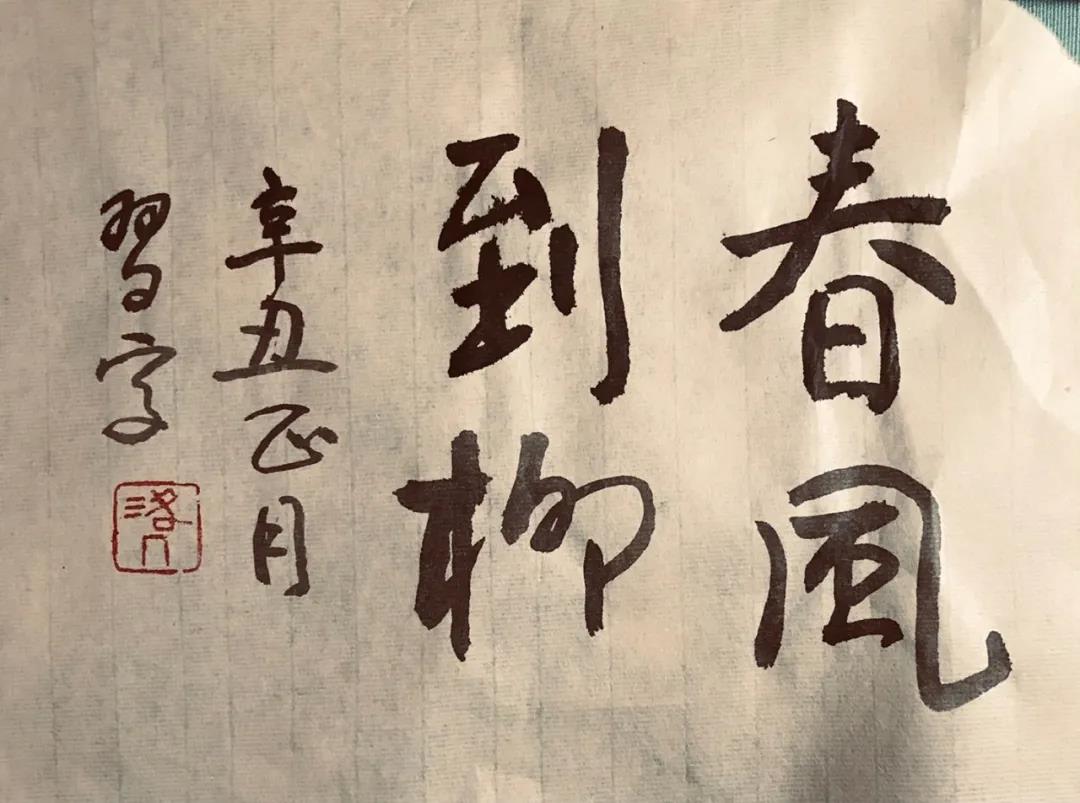 春風
到柳
辛丑正月
習字